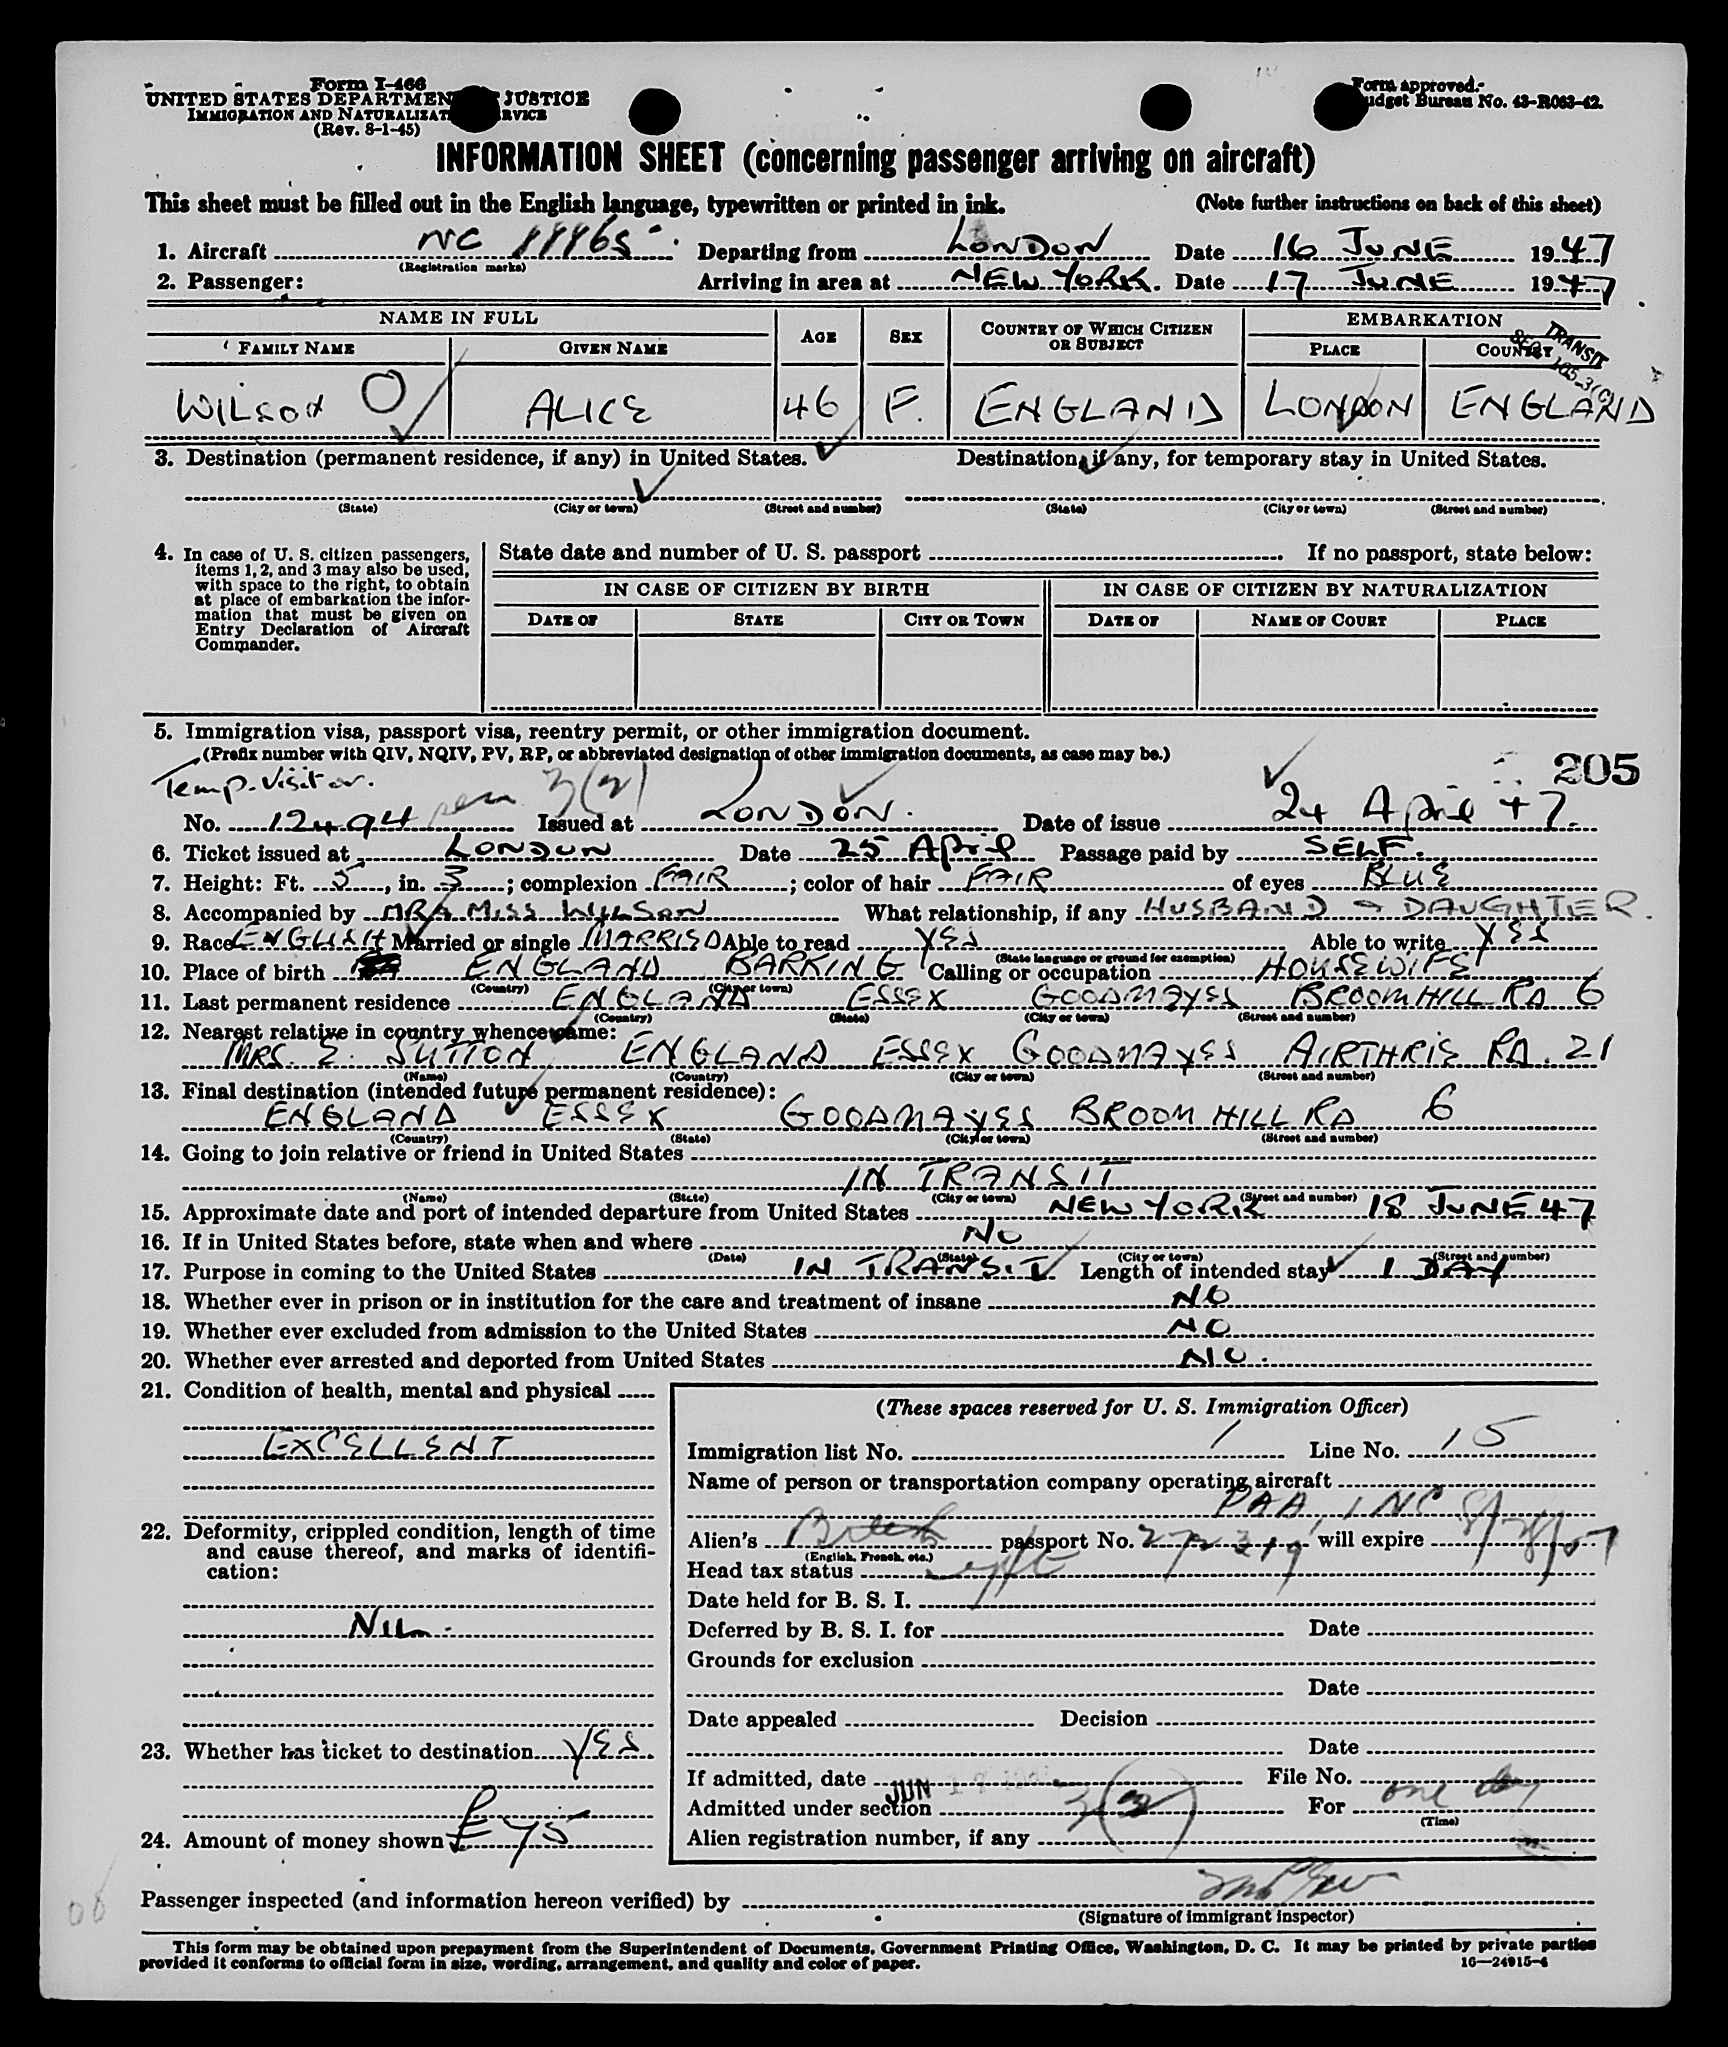 Form I-466
UNITED STATES DEPARTMENT JUSTICE
IMMIGRATION AND NATURALIZATION SERVICE
(Rev. 8-1-45)
Form approved.
Budget Bureau No. 43-R063-42.
INFORMATION SHEET (concerning passenger arriving on aircraft)
This sheet must be filled out in the English language, typewritten or printed in ink. (Note further instructions on back of this sheet)
1. Aircraft NC 88865 Departing from LONDON Date 16 JUNE 1947
(Registration marks)
2. Passenger: Arriving in area at NEW YORK. Date 17 JUNE 1947
NAME IN FULL AGE SEX COUNTRY OF WHICH CITIZEN OR SUBJECT EMBARKATION
FAMILY NAME GIVEN NAME PLACE COUNTRY
TRANSIT
WILSON ALICE 46 F. ENGLAND LONDON ENGLAND
3. Destination (permanent residence, if any) in United States. Destination, if any, for temporary stay in United States.
(State) (City or town) (Street and number) (State) (City or town) (Street and number)
4. In case of U. S. citizen passengers, items 1, 2, and 3 may also be used, with space to the right, to obtain at place of embarkation the information that must be given on Entry Declaration of Aircraft Commander.
State date and number of U. S. passport If no passport, state below:
IN CASE OF CITIZEN BY BIRTH IN CASE OF CITIZEN BY NATURALIZATION
DATE OF STATE CITY OR TOWN DATE OF NAME OF COURT PLACE
5. Immigration visa, passport visa, reentry permit, or other immigration document.
(Prefix number with QIV, NQIV, PV, RP, or abbreviated designation of other immigration documents, as case may be.)
205
Temp. Visitor. 3(2)
No. 12494 Issued at LONDON. Date of issue 24 April 47.
6. Ticket issued at LONDON Date 25 April Passage paid by SELF.
7. Height: Ft. 5, in. 3; complexion FAIR; color of hair FAIR of eyes BLUE
8. Accompanied by MR & MISS WILSON What relationship, if any HUSBAND & DAUGHTER.
9. Race ENGLISH Married or single MARRIED Able to read YES Able to write YES
(State language or ground for exemption)
10. Place of birth ENGLAND BARKING Calling or occupation HOUSEWIFE
(Country) (City or town)
11. Last permanent residence ENGLAND ESSEX GOODMAYES BROOMHILL RD 6
(Country) (State) (City or town) (Street and number)
12. Nearest relative in country whence came:
MRS. E. SUTTON ENGLAND ESSEX GOODMAYES AIRTHRIE RD. 21
(Name) (Country) (City or town) (Street and number)
13. Final destination (intended future permanent residence):
ENGLAND ESSEX GOODMAYES BROOMHILL RD 6
(Country) (State) (City or town) (Street and number)
14. Going to join relative or friend in United States
IN TRANSIT
(Name) (State) (City or town) (Street and number)
15. Approximate date and port of intended departure from United States NEW YORK 18 JUNE 47
16. If in United States before, state when and where NO
(Date) (State) (City or town) (Street and number)
17. Purpose in coming to the United States IN TRANSIT Length of intended stay 1 DAY
18. Whether ever in prison or in institution for the care and treatment of insane NO
19. Whether ever excluded from admission to the United States NO
20. Whether ever arrested and deported from United States NO.
21. Condition of health, mental and physical
EXCELLENT
22. Deformity, crippled condition, length of time and cause thereof, and marks of identification:
NIL.
23. Whether has ticket to destination YES
24. Amount of money shown £75
(These spaces reserved for U. S. Immigration Officer)
Immigration list No. 1 Line No. 15
Name of person or transportation company operating aircraft
PAA, INC
Alien's British passport No. will expire
(English, French, etc.)
Head tax status
Date held for B. S. I.
Deferred by B. S. I. for Date
Grounds for exclusion
Date
Date appealed Decision
Date
If admitted, date JUN 17 File No.
Admitted under section 3(2) For one day
(Time)
Alien registration number, if any
Passenger inspected (and information hereon verified) by
(Signature of immigrant inspector)
This form may be obtained upon prepayment from the Superintendent of Documents, Government Printing Office, Washington, D. C. It may be printed by private parties
provided it conforms to official form in size, wording, arrangement, and quality and color of paper. 16—24915-4